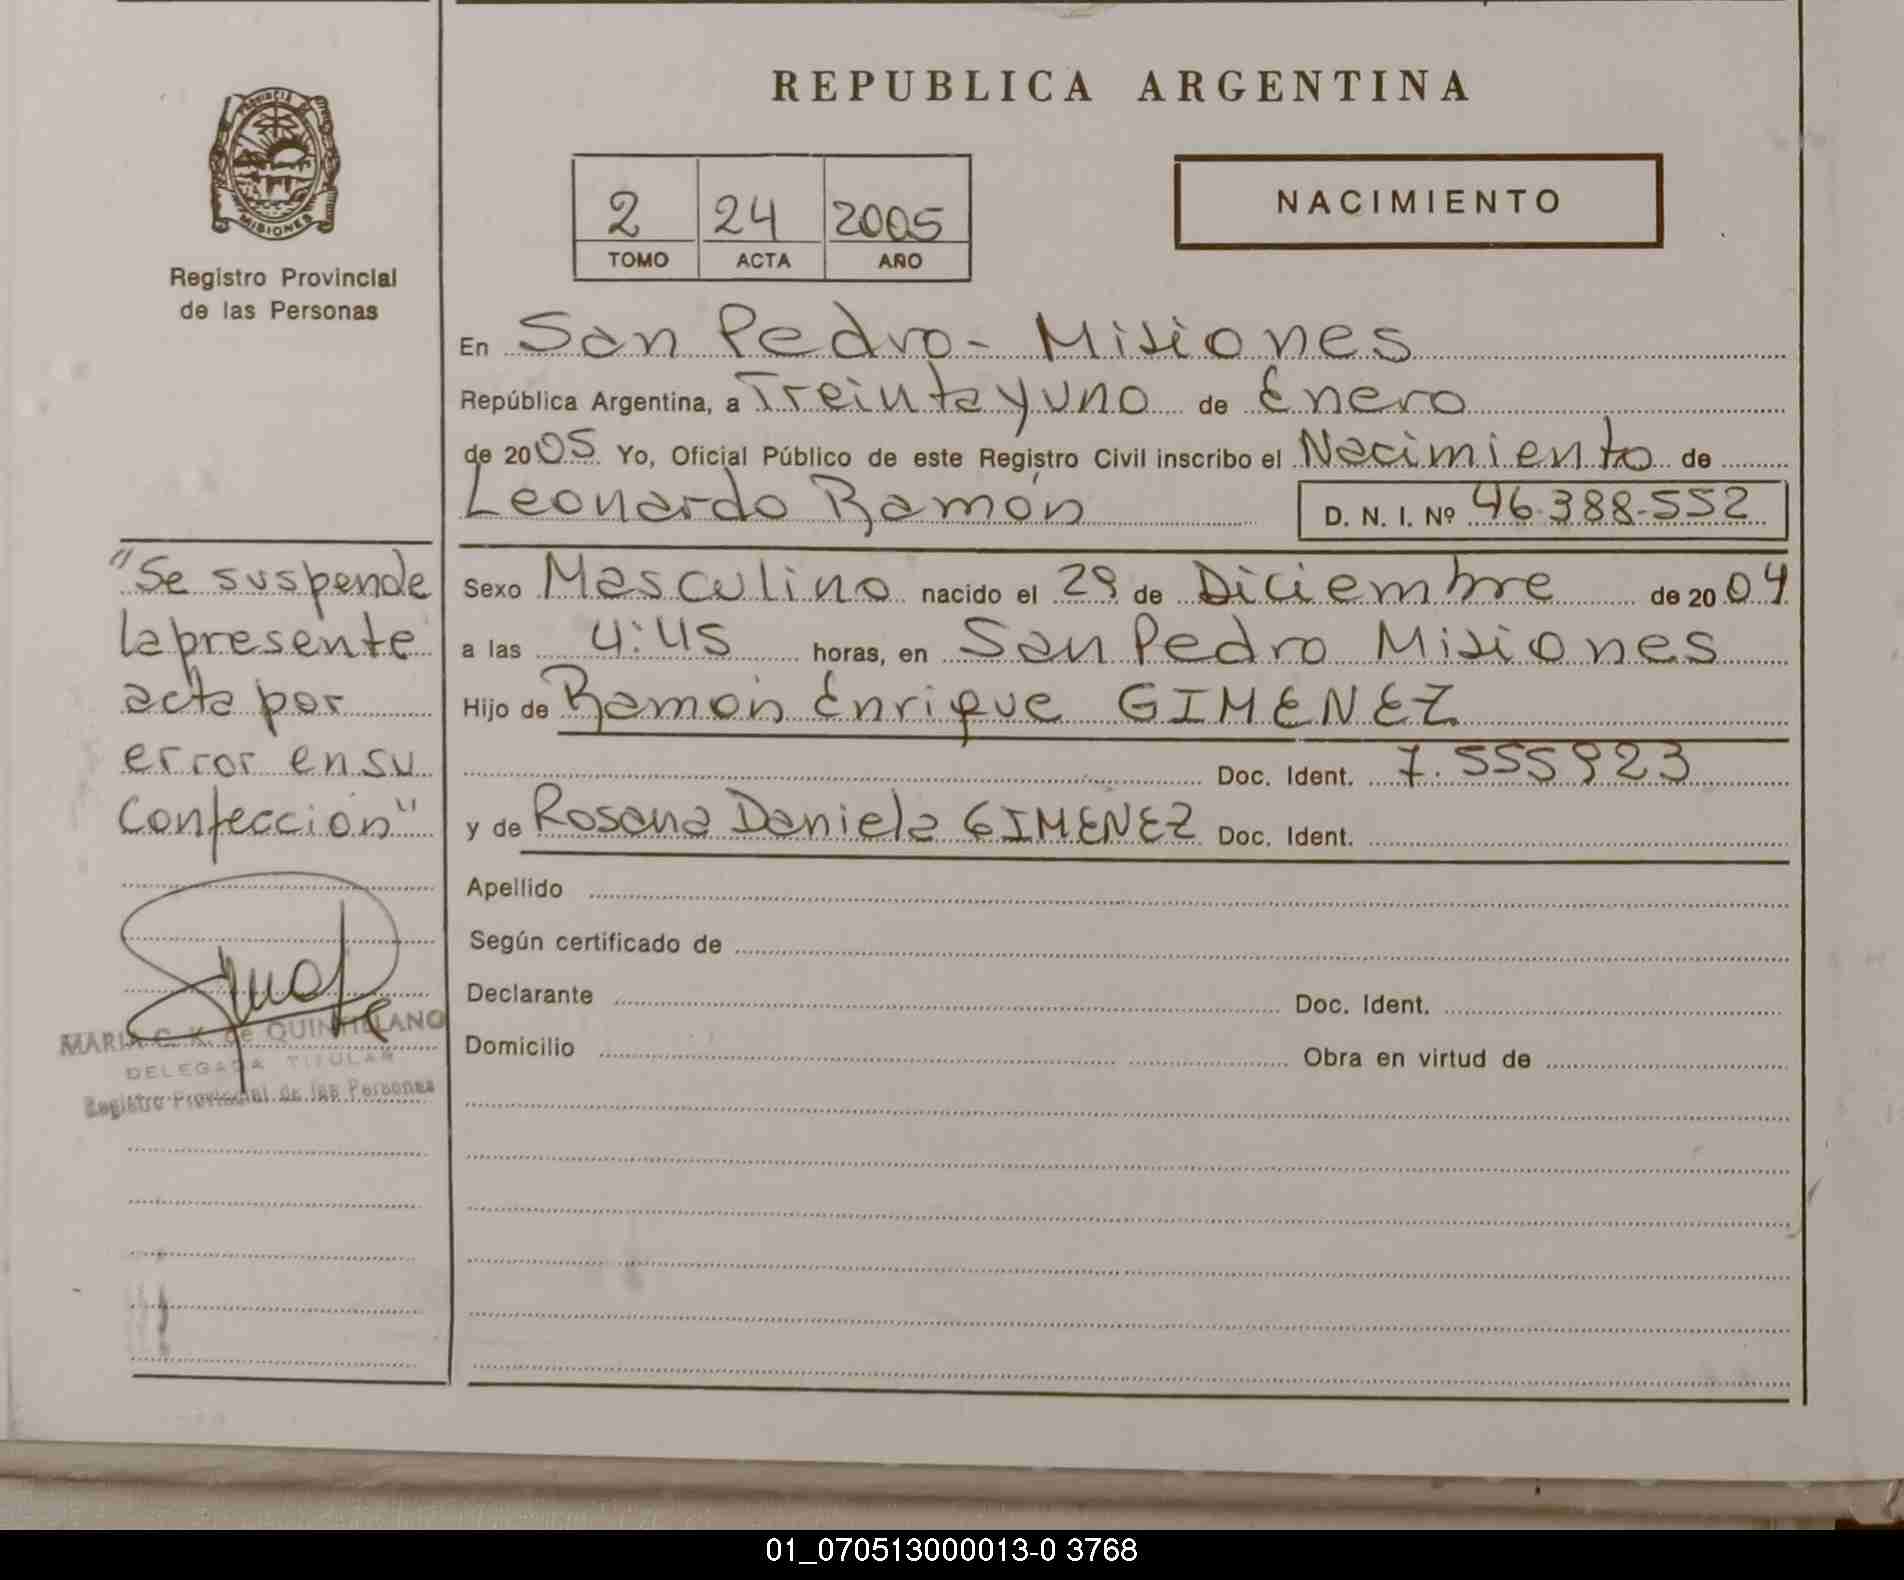 PROVINCIA
MISIONES
Registro Provincial
de las Personas
"Se suspende
la presente
acta por
error en su
Confección"
MARIA C. K. de QUINTILLANO
DELEGADA TITULAR
Registro Provincial de las Personas
REPUBLICA ARGENTINA
2 24 2005
TOMO ACTA AÑO
NACIMIENTO
En San Pedro - Misiones
República Argentina, a Treinta y uno de Enero
de 2005 Yo, Oficial Público de este Registro Civil inscribo el Nacimiento de
Leonardo Ramón D. N. I. Nº 46.388.552
Sexo Masculino nacido el 29 de Diciembre de 2004
a las 4:45 horas, en San Pedro Misiones
Hijo de Ramón Enrique GIMENEZ
Doc. Ident. 7.555923
y de Rosana Daniela GIMENEZ Doc. Ident.
Apellido
Según certificado de
Declarante Doc. Ident.
Domicilio Obra en virtud de
01_070513000013-0 3768